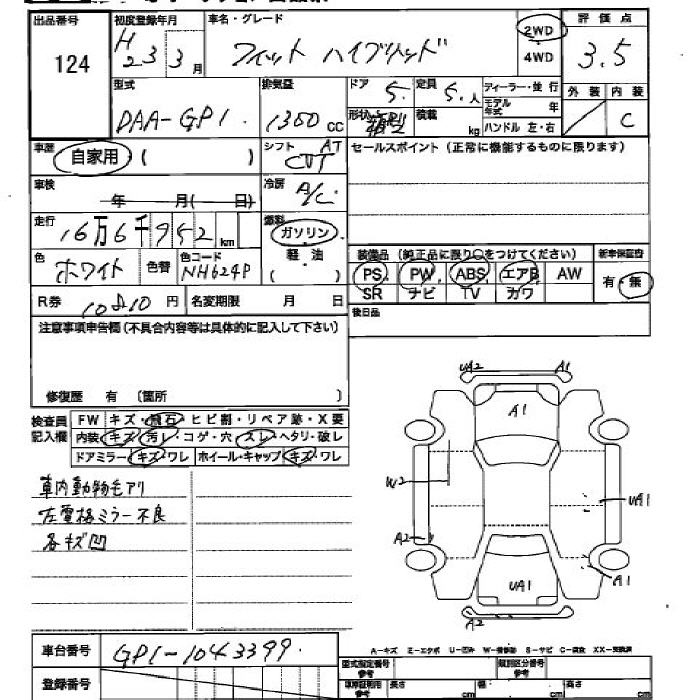 出品番号 初度登録年月 車名・グレード 2WD 評価点
124 H23 3月 フィット ハイブリッド 4WD 3.5
型式 排気量 ドア 定員 ディーラー・並行 外装 内装
DAA-GP1 1300cc 5 5人 モデル年式 年
形状 箱型 積載 kg ハンドル 左・右 / C
車歴 自家用 ( ) シフト AT CVT セールスポイント (正常に機能するものに限ります)
車検 年 月( 日) 冷房 A/C
走行 16万6千952km 燃料 ガソリン
軽・油 装備品 (純正品に限り○をつけてください) 新車保証書
色 ホワイト 色替 色コード NH624P ( ) PS PW ABS エアB AW 有・無
R券 10810円 名変期限 月 日 SR ナビ TV カワ
注意事項申告欄 (不具合内容等は具体的に記入して下さい) 後日品
修復歴 有 〔箇所 〕
検査員記入欄 FW キズ・飛石・ヒビ割・リペア跡・X要
内装 キズ・汚レ・コゲ・穴・スレ・ヘタリ・破レ
ドアミラー キズ・ワレ ホイール・キャップ キズ・ワレ
車内動物毛アリ
左電格ミラー不良
各キズ凹
UA2 A1
A1
W2
UA1
A2
A1
UA1
A2
A-キズ E-エクボ U-凹み W-補修跡 S-サビ C-腐食 XX-交換済
車台番号 GP1-1043399
型式指定番号 参考 類別区分番号 参考
登録番号 長さ cm 幅 cm 高さ cm